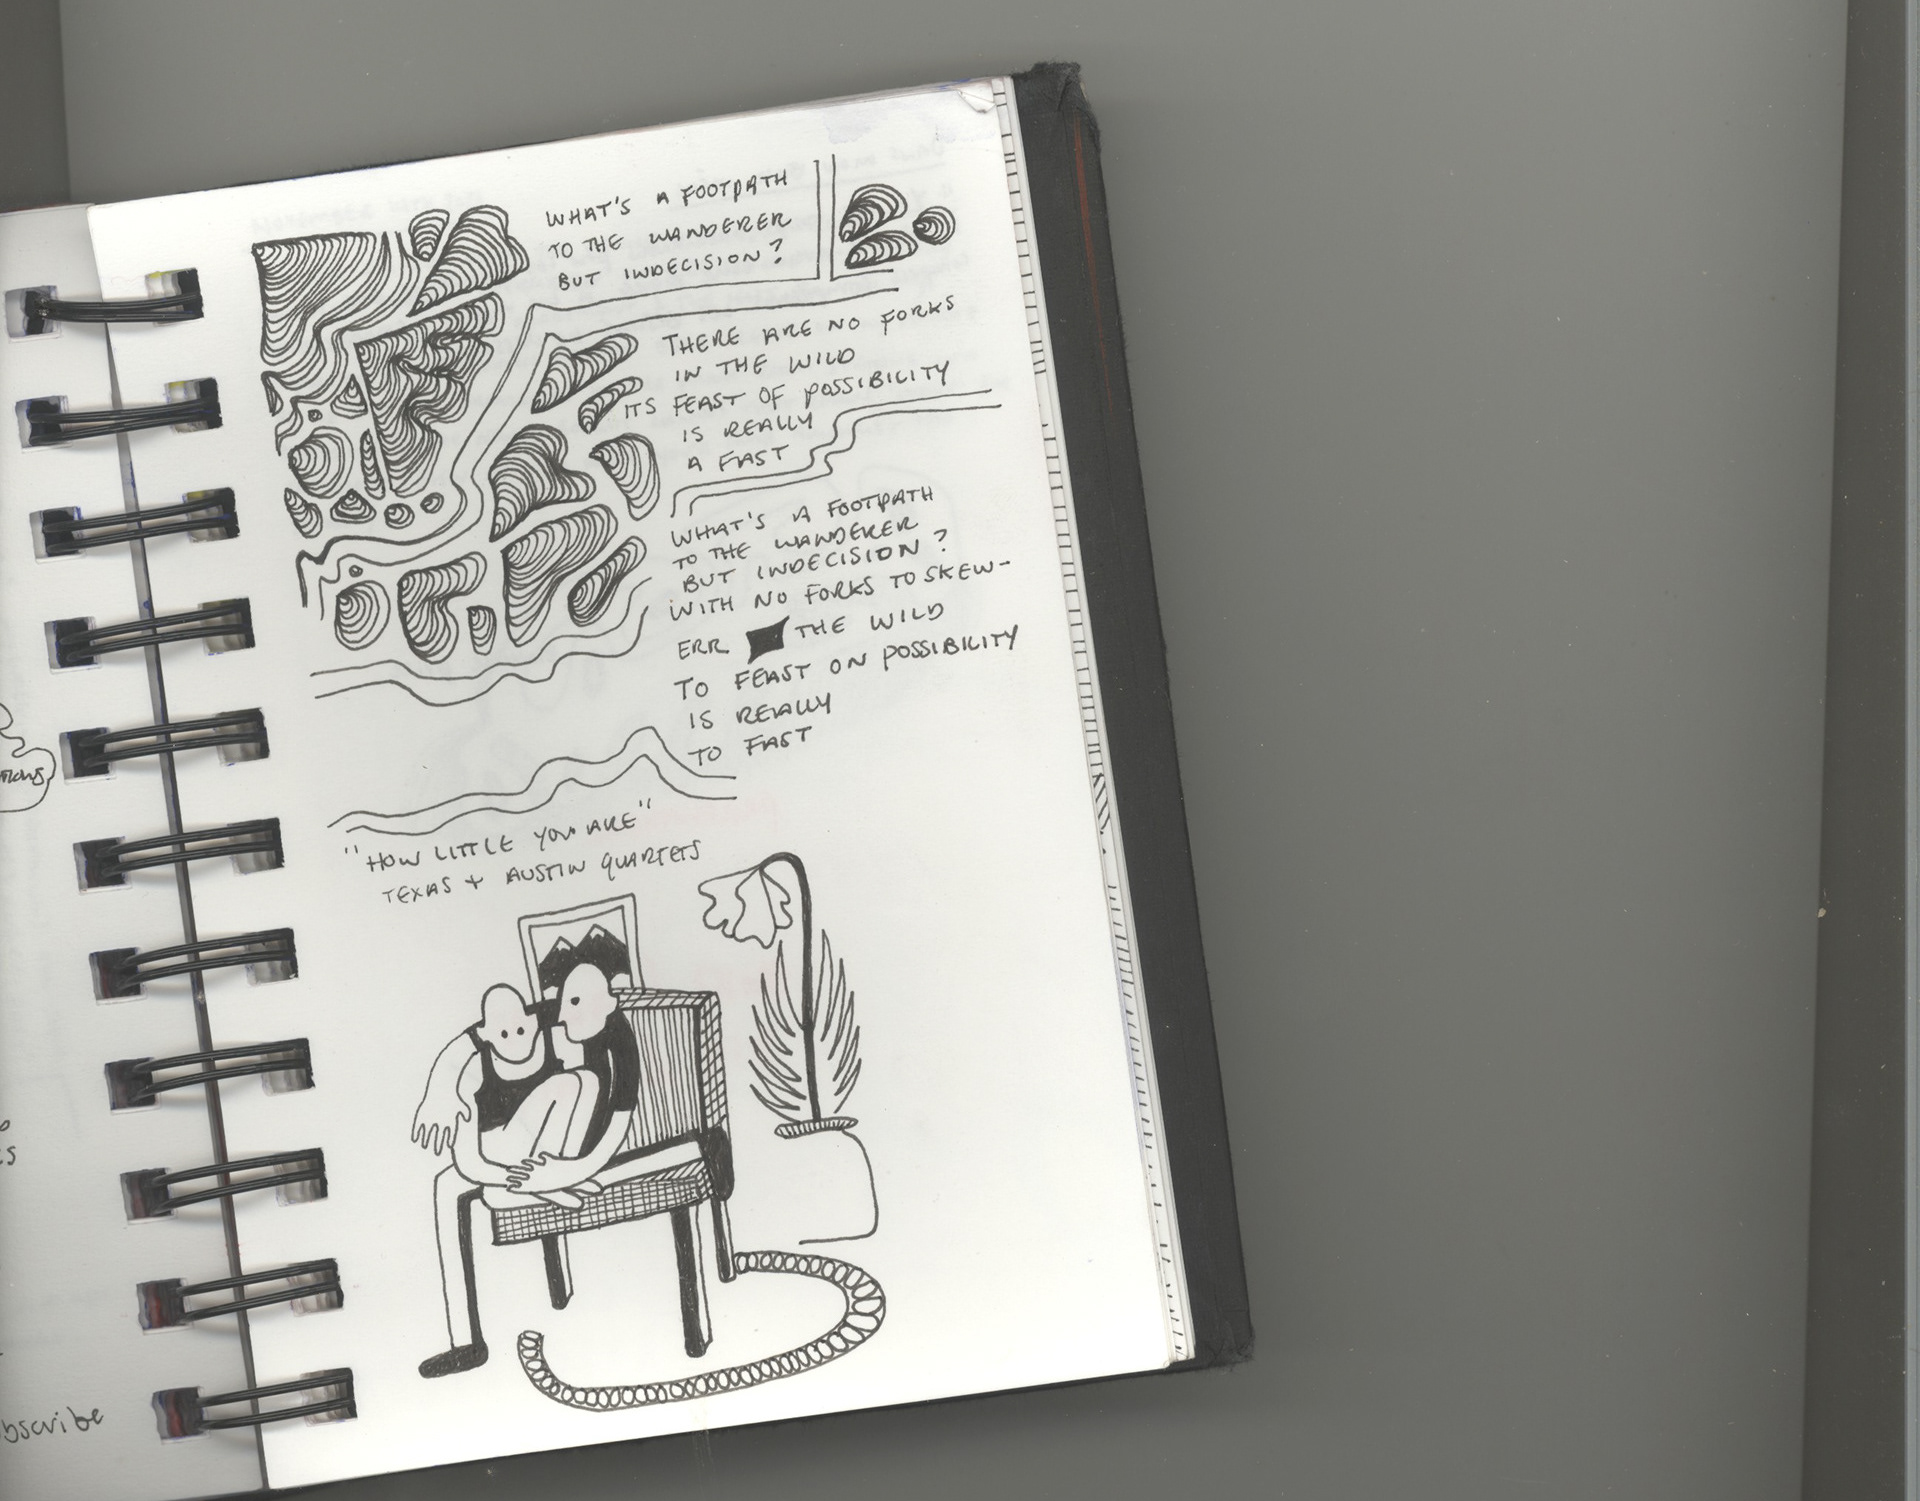 WHAT'S A FOOTPATH
TO THE WANDERER
BUT INDECISION?
THERE ARE NO FORKS
IN THE WILD
ITS FEAST OF POSSIBILITY
IS REALLY
A FAST
WHAT'S A FOOTPATH
TO THE WANDERER
BUT INDECISION?
WITH NO FORKS TO SKEW-
ERR THE WILD
TO FEAST ON POSSIBILITY
IS REALLY
TO FAST
"HOW LITTLE YOU ARE"
TEXAS + AUSTIN QUARTETS
bscribe